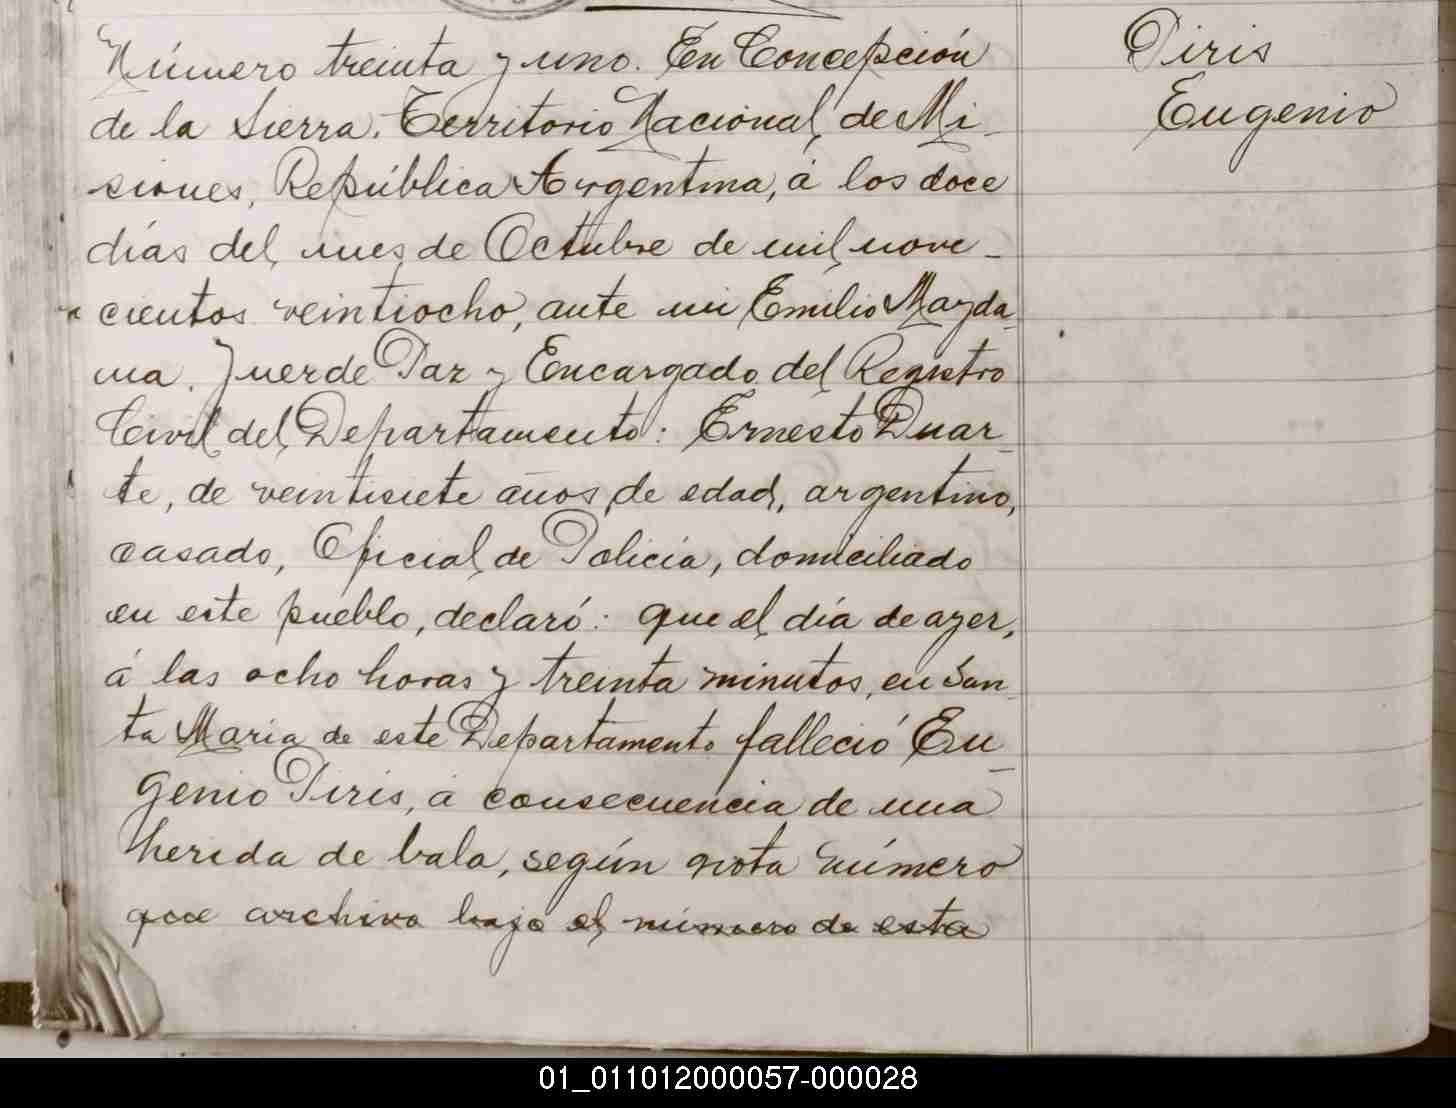 Piris
Eugenio
Número treinta y uno. En Concepción
de la Sierra, Territorio Nacional de Mi-
siones, República Argentina, á los doce
días del mes de Octubre de mil nove-
cientos veintiocho, ante mi Emilio Mayda-
na, Juez de Paz y Encargado del Registro
Civil del Departamento: Ernesto Duar-
te, de veintisiete años de edad, argentino,
casado, Oficial de Policía, domiciliado
en este pueblo, declaró: que el día de ayer,
á las ocho horas y treinta minutos, en San-
ta María de este Departamento falleció Eu-
genio Piris, á consecuencia de una
herida de bala, según nota número
que archivo bajo el número de esta
01_011012000057-000028